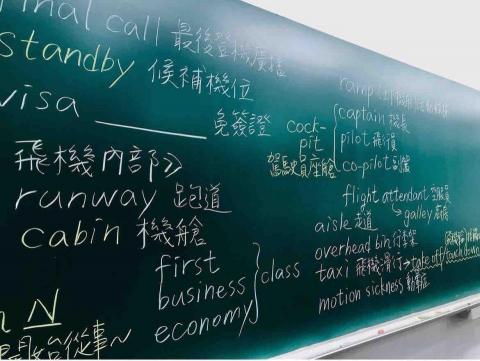 final call 最後登機廣播
standby 候補機位
visa ______ 免簽證
飛機內部》
runway 跑道
cabin 機艙
first
business
economy
class
n N
開始從事~
ramp
cockpit 駕駛員座艙
captain 機長
pilot 飛行員
co-pilot 副駕
flight attendant 空服員
galley 廚艙
aisle 走道
overhead bin 行李架
taxi 飛機滑行 → take off/touch down
motion sickness 動暈症